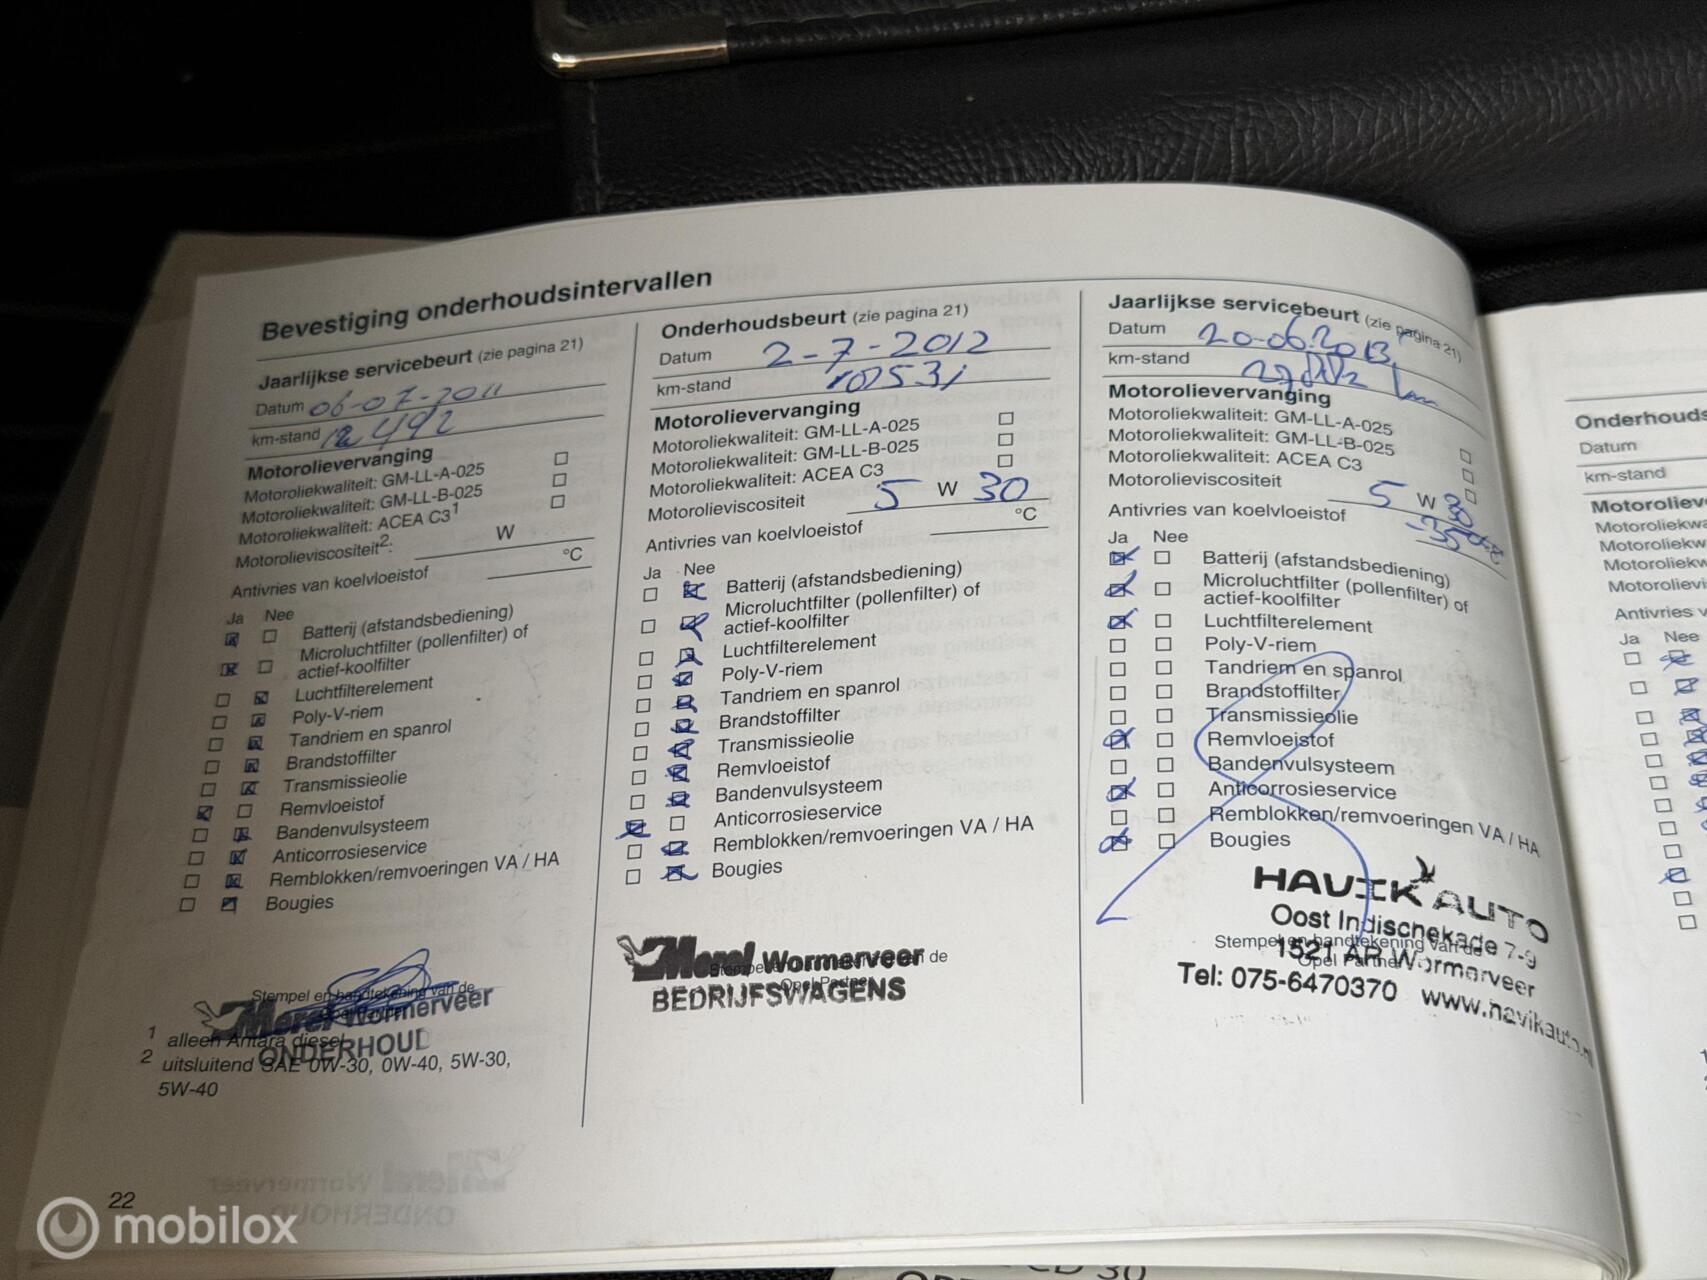 Bevestiging onderhoudsintervallen
Jaarlijkse servicebeurt (zie pagina 21)
Datum 06-07-2011
km-stand
Motorolievervanging
Motoroliekwaliteit: GM-LL-A-025
Motoroliekwaliteit: GM-LL-B-025
Motoroliekwaliteit: ACEA C3¹
Motorolieviscositeit²: W
Antivries van koelvloeistof °C
Ja Nee
Batterij (afstandsbediening)
Microluchtfilter (pollenfilter) of
actief-koolfilter
Luchtfilterelement
Poly-V-riem
Tandriem en spanrol
Brandstoffilter
Transmissieolie
Remvloeistof
Bandenvulsysteem
Anticorrosieservice
Remblokken/remvoeringen VA / HA
Bougies
Stempel en handtekening van de
Merel Wormerveer
ONDERHOUD
1 alleen Antara diesel
2 uitsluitend SAE 0W-30, 0W-40, 5W-30,
5W-40
22
Onderhoudsbeurt (zie pagina 21)
Datum 2-7-2012
km-stand
Motorolievervanging
Motoroliekwaliteit: GM-LL-A-025
Motoroliekwaliteit: GM-LL-B-025
Motoroliekwaliteit: ACEA C3
Motorolieviscositeit 5 W 30
Antivries van koelvloeistof °C
Ja Nee
Batterij (afstandsbediening)
Microluchtfilter (pollenfilter) of
actief-koolfilter
Luchtfilterelement
Poly-V-riem
Tandriem en spanrol
Brandstoffilter
Transmissieolie
Remvloeistof
Bandenvulsysteem
Anticorrosieservice
Remblokken/remvoeringen VA / HA
Bougies
Merel Wormerveer
van de
Opel Partner
BEDRIJFSWAGENS
Jaarlijkse servicebeurt (zie pagina 21)
Datum 20-06-2013
km-stand
Motorolievervanging
Motoroliekwaliteit: GM-LL-A-025
Motoroliekwaliteit: GM-LL-B-025
Motoroliekwaliteit: ACEA C3
Motorolieviscositeit 5 W 30
Antivries van koelvloeistof -35 °C
Ja Nee
Batterij (afstandsbediening)
Microluchtfilter (pollenfilter) of
actief-koolfilter
Luchtfilterelement
Poly-V-riem
Tandriem en spanrol
Brandstoffilter
Transmissieolie
Remvloeistof
Bandenvulsysteem
Anticorrosieservice
Remblokken/remvoeringen VA / HA
Bougies
HAVIK AUTO
Oost Indischekade 7-9
Stempel en handtekening van de
Opel Partner
1521 AR Wormerveer
Tel: 075-6470370 www.havikauto.nl
Onderhouds
Datum
km-stand
Motorolieve
Motoroliekwa
Motoroliekw
Motoroliekw
Motorolievi
Antivries v
Ja Nee
CD 30
mobilox